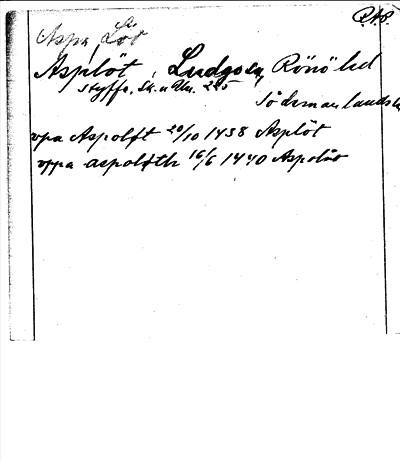 R.A.P.
Aspa Löt
Asplöt, Ludgo sn, Rönö hd
Skyffs. Sk. u Utn. 225
Södermanlands
vpa Aspoløt 20/10 1438 Asplöt
oppa aspoløth 16/6 1440 Aspolöt